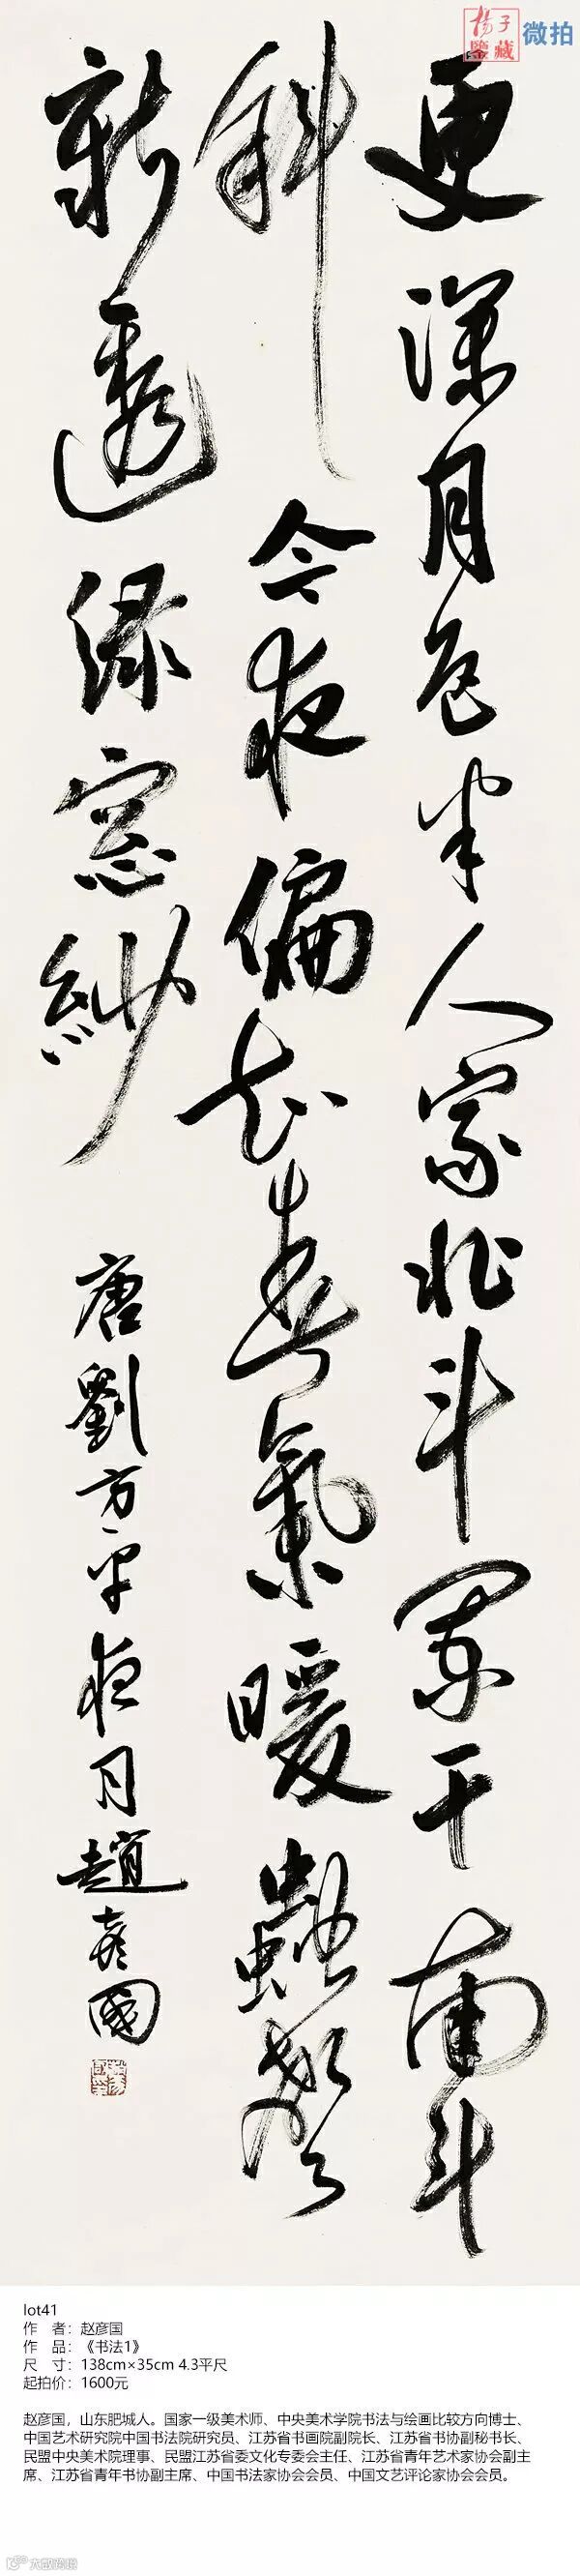 杨子
鉴藏
微拍
更深月色半人家北斗阑干南斗
斜今夜偏知春气暖虫声
新透绿窗纱
唐劉方平夜月趙彦國
lot41
作 者：赵彦国
作 品：《书法1》
尺 寸：138cm×35cm 4.3平尺
起拍价：1600元
赵彦国，山东肥城人。国家一级美术师、中央美术学院书法与绘画比较方向博士、
中国艺术研究院中国书法院研究员、江苏省书画院副院长、江苏省书协副秘书长、
民盟中央美术院理事、民盟江苏省委文化专委会主任、江苏省青年艺术家协会副主
席、江苏省青年书协副主席、中国书法家协会会员、中国文艺评论家协会会员。